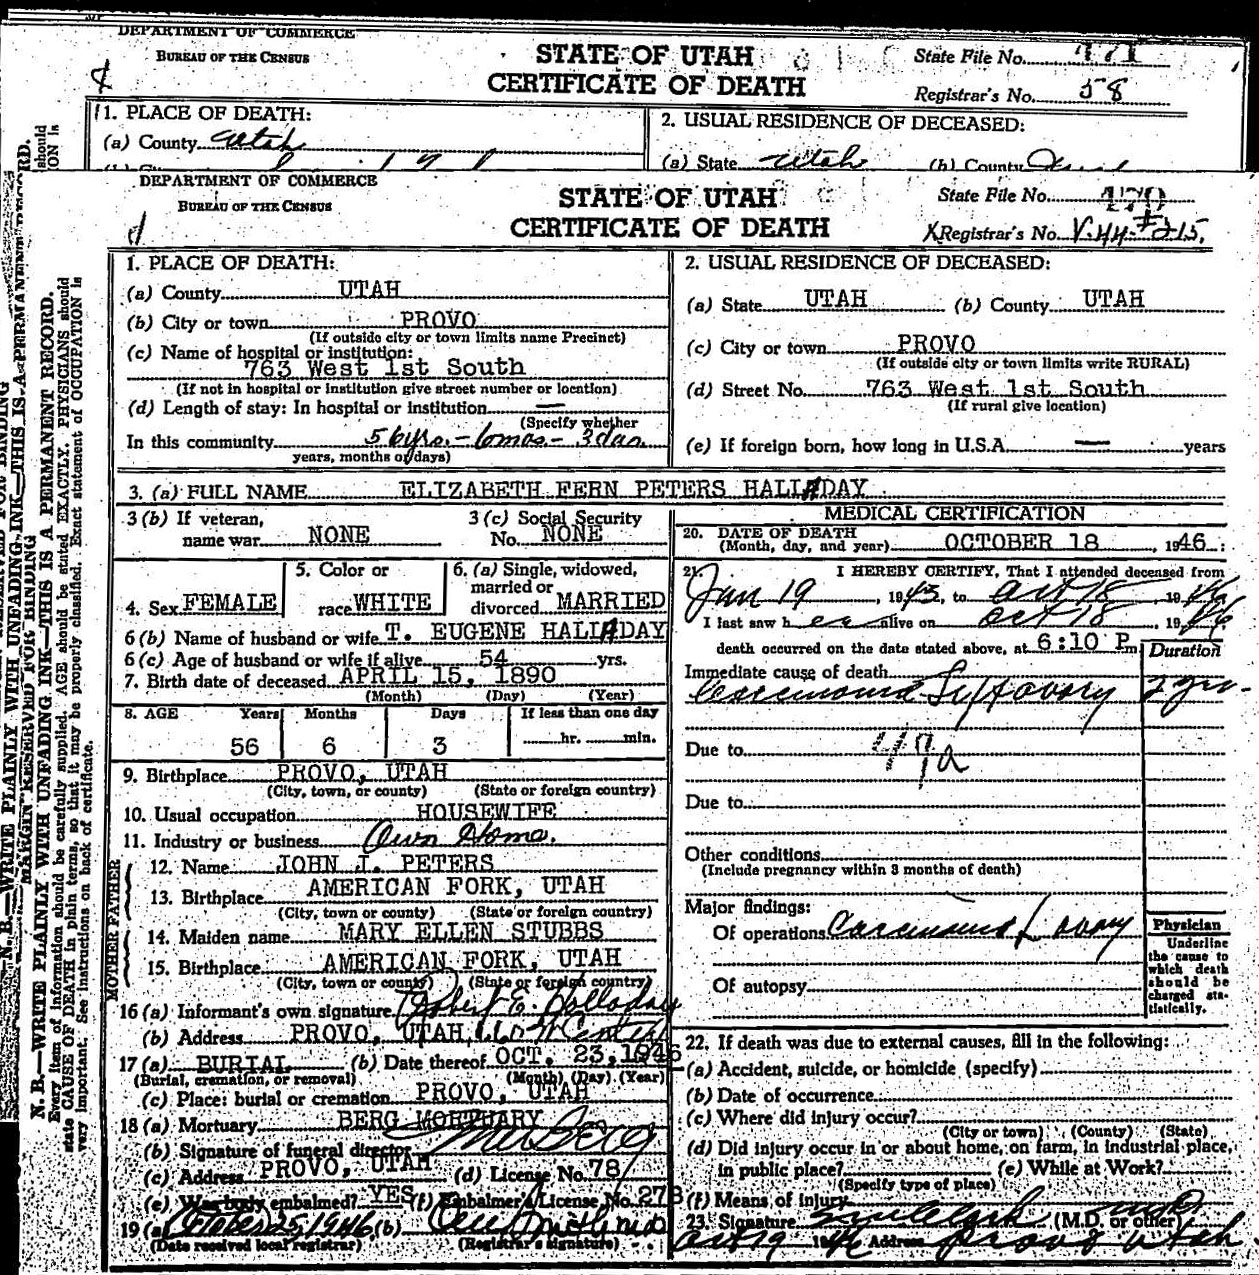 DEPARTMENT OF COMMERCE
BUREAU OF THE CENSUS
STATE OF UTAH
CERTIFICATE OF DEATH
State File No. 171
Registrar's No. 58
1. PLACE OF DEATH:
(a) County Utah
2. USUAL RESIDENCE OF DECEASED:
(a) State Utah (b) County
DEPARTMENT OF COMMERCE
BUREAU OF THE CENSUS
STATE OF UTAH
CERTIFICATE OF DEATH
State File No. 170
X Registrar's No. V-44-#215.
1. PLACE OF DEATH:
(a) County UTAH
(b) City or town PROVO
(If outside city or town limits name Precinct)
(c) Name of hospital or institution:
763 West 1st South
(If not in hospital or institution give street number or location)
(d) Length of stay: In hospital or institution —
(Specify whether
In this community 56yrs.-6mos-3das
years, months or days)
2. USUAL RESIDENCE OF DECEASED:
(a) State UTAH (b) County UTAH
(c) City or town PROVO
(If outside city or town limits write RURAL)
(d) Street No. 763 West 1st South
(If rural give location)
(e) If foreign born, how long in U.S.A. — years
3. (a) FULL NAME ELIZABETH FERN PETERS HALLADAY
3 (b) If veteran, name war NONE
3 (c) Social Security No. NONE
4. Sex FEMALE
5. Color or race WHITE
6. (a) Single, widowed, married or divorced MARRIED
6 (b) Name of husband or wife T. EUGENE HALLADAY
6 (c) Age of husband or wife if alive 54 yrs.
7. Birth date of deceased APRIL 15, 1890
(Month) (Day) (Year)
8. AGE Years Months Days If less than one day
56 6 3 hr. min.
9. Birthplace PROVO, UTAH
(City, town, or county) (State or foreign country)
10. Usual occupation HOUSEWIFE
11. Industry or business Own Home.
FATHER
12. Name JOHN J. PETERS
13. Birthplace AMERICAN FORK, UTAH
(City, town or county) (State or foreign country)
MOTHER
14. Maiden name MARY ELLEN STUBBS
15. Birthplace AMERICAN FORK, UTAH
(City, town or county) (State or foreign country)
16 (a) Informant's own signature Robert E. Holladay
(b) Address PROVO, UTAH, W Center
17 (a) BURIAL (b) Date thereof OCT. 23, 1946
(Burial, cremation, or removal) (Month) (Day) (Year)
(c) Place: burial or cremation PROVO, UTAH
18 (a) Mortuary BERG MORTUARY
(b) Signature of funeral director Berg
(c) Address PROVO, UTAH (d) License No. 78
(e) Was body embalmed? YES (f) Embalmer's License No. 273
19 (a) October 25, 1946 (b)
(Date received local registrar) (Registrar's signature)
MEDICAL CERTIFICATION
20. DATE OF DEATH
(Month, day, and year) OCTOBER 18, 1946
21. I HEREBY CERTIFY, That I attended deceased from
Jan 19, 1943, to Oct 18, 1946
I last saw her alive on Oct 18 1946
death occurred on the date stated above, at 6:10 P. m
Duration
Immediate cause of death
Carcinoma Left ovary 2 yrs-
Due to 47a
Due to
Other conditions
(Include pregnancy within 3 months of death)
Major findings:
Of operations Carcinoma L ovary
Of autopsy
Physician
Underline the cause to which death should be charged statistically.
22. If death was due to external causes, fill in the following:
(a) Accident, suicide, or homicide (specify)
(b) Date of occurrence
(c) Where did injury occur?
(City or town) (County) (State)
(d) Did injury occur in or about home, on farm, in industrial place,
in public place? (e) While at Work?
(Specify type of place)
(f) Means of injury
23. Signature Clark MD (M.D. or other)
Oct 19 1946 Address Provo Utah
MARGIN RESERVED FOR BINDING
N. B.—WRITE PLAINLY WITH UNFADING INK—THIS IS A PERMANENT RECORD.
Every item of information should be carefully supplied. AGE should be stated EXACTLY. PHYSICIANS should
state CAUSE OF DEATH in plain terms, so that it may be properly classified. Exact statement of OCCUPATION is
very important. See instructions on back of certificate.